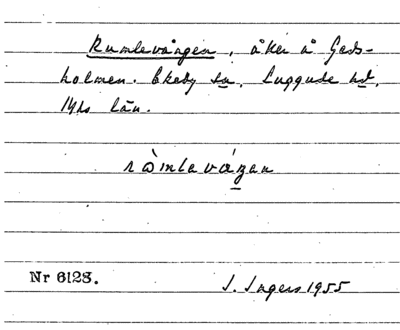 Rumlevången, åker å Gads-
holmen. Ekeby sn, Luggude hd,
Mhs län.
ràmlavágen
Nr 6128.
J. Ingers 1955